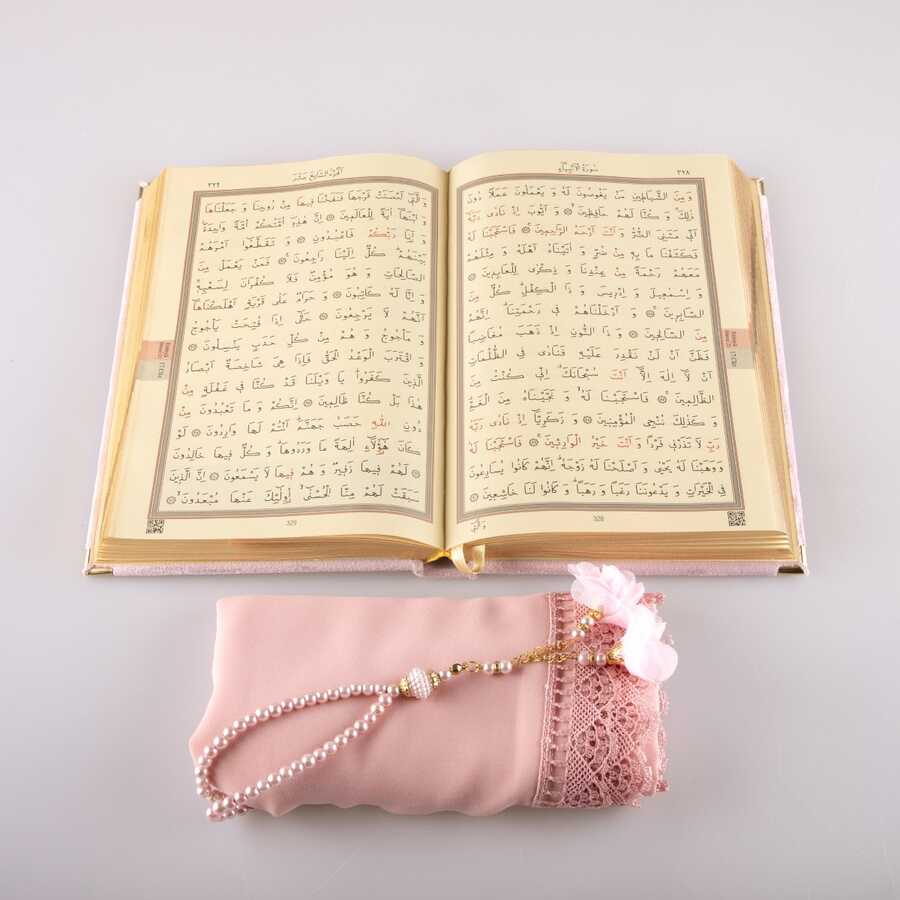 سُورَةُ الْاَنْبِيَاءِ ٣٢٨
وَ مِنَ الشَّيَاطِينِ مَنْ يَغُوصُونَ لَهُ وَ يَعْمَلُونَ عَمَلًا دُونَ
ذٰلِكَ وَ كُنَّا لَهُمْ حَافِظِينَ وَ اَيُّوبَ اِذْ نَادٰى رَبَّهُ
اَنِّي مَسَّنِيَ الضُّرُّ وَ اَنْتَ اَرْحَمُ الرَّاحِمِينَ فَاسْتَجَبْنَا لَهُ
فَكَشَفْنَا مَا بِهِ مِنْ ضُرٍّ وَ اٰتَيْنَاهُ اَهْلَهُ وَ مِثْلَهُمْ
مَعَهُمْ رَحْمَةً مِنْ عِنْدِنَا وَ ذِكْرٰى لِلْعَابِدِينَ
وَ اِسْمٰعِيلَ وَ اِدْرِيسَ وَ ذَا الْكِفْلِ كُلٌّ مِنَ
الصَّابِرِينَ وَ اَدْخَلْنَاهُمْ فِي رَحْمَتِنَا اِنَّهُمْ
مِنَ الصَّالِحِينَ وَ ذَا النُّونِ اِذْ ذَهَبَ مُغَاضِبًا
فَظَنَّ اَنْ لَنْ نَقْدِرَ عَلَيْهِ فَنَادٰى فِي الظُّلُمَاتِ
اَنْ لَا اِلٰهَ اِلَّا اَنْتَ سُبْحَانَكَ اِنِّي كُنْتُ مِنَ
الظَّالِمِينَ فَاسْتَجَبْنَا لَهُ وَ نَجَّيْنَاهُ مِنَ الْغَمِّ
وَ كَذٰلِكَ نُنْجِي الْمُؤْمِنِينَ وَ زَكَرِيَّا اِذْ نَادٰى رَبَّهُ
رَبِّ لَا تَذَرْنِي فَرْدًا وَ اَنْتَ خَيْرُ الْوَارِثِينَ فَاسْتَجَبْنَا لَهُ
وَ وَهَبْنَا لَهُ يَحْيٰى وَ اَصْلَحْنَا لَهُ زَوْجَهُ اِنَّهُمْ كَانُوا يُسَارِعُونَ
فِي الْخَيْرَاتِ وَ يَدْعُونَنَا رَغَبًا وَ رَهَبًا وَ كَانُوا لَنَا خَاشِعِينَ
وَالَّتِي
328
اَلْجُزْءُ السَّابِعَ عَشَرَ ٣٢٩
وَ الَّتِي اَحْصَنَتْ فَرْجَهَا فَنَفَخْنَا فِيهَا مِنْ رُوحِنَا وَ جَعَلْنَاهَا
وَ ابْنَهَا اٰيَةً لِلْعَالَمِينَ اِنَّ هٰذِهِ اُمَّتُكُمْ اُمَّةً وَاحِدَةً
وَ اَنَا رَبُّكُمْ فَاعْبُدُونِ وَ تَقَطَّعُوا اَمْرَهُمْ
بَيْنَهُمْ كُلٌّ اِلَيْنَا رَاجِعُونَ فَمَنْ يَعْمَلْ مِنَ
الصَّالِحَاتِ وَ هُوَ مُؤْمِنٌ فَلَا كُفْرَانَ لِسَعْيِهِ
وَ اِنَّا لَهُ كَاتِبُونَ وَ حَرَامٌ عَلٰى قَرْيَةٍ اَهْلَكْنَاهَا
اَنَّهُمْ لَا يَرْجِعُونَ حَتّٰى اِذَا فُتِحَتْ يَأْجُوجُ
وَ مَأْجُوجُ وَ هُمْ مِنْ كُلِّ حَدَبٍ يَنْسِلُونَ
وَ اقْتَرَبَ الْوَعْدُ الْحَقُّ فَاِذَا هِيَ شَاخِصَةٌ اَبْصَارُ
الَّذِينَ كَفَرُوا يَا وَيْلَنَا قَدْ كُنَّا فِي غَفْلَةٍ مِنْ
هٰذَا بَلْ كُنَّا ظَالِمِينَ اِنَّكُمْ وَ مَا تَعْبُدُونَ مِنْ
دُونِ اللّٰهِ حَصَبُ جَهَنَّمَ اَنْتُمْ لَهَا وَارِدُونَ لَوْ
كَانَ هٰٓؤُلَاءِ اٰلِهَةً مَا وَرَدُوهَا وَ كُلٌّ فِيهَا خَالِدُونَ
لَهُمْ فِيهَا زَفِيرٌ وَ هُمْ فِيهَا لَا يَسْمَعُونَ اِنَّ الَّذِينَ
سَبَقَتْ لَهُمْ مِنَّا الْحُسْنٰى اُولٰٓئِكَ عَنْهَا مُبْعَدُونَ
329